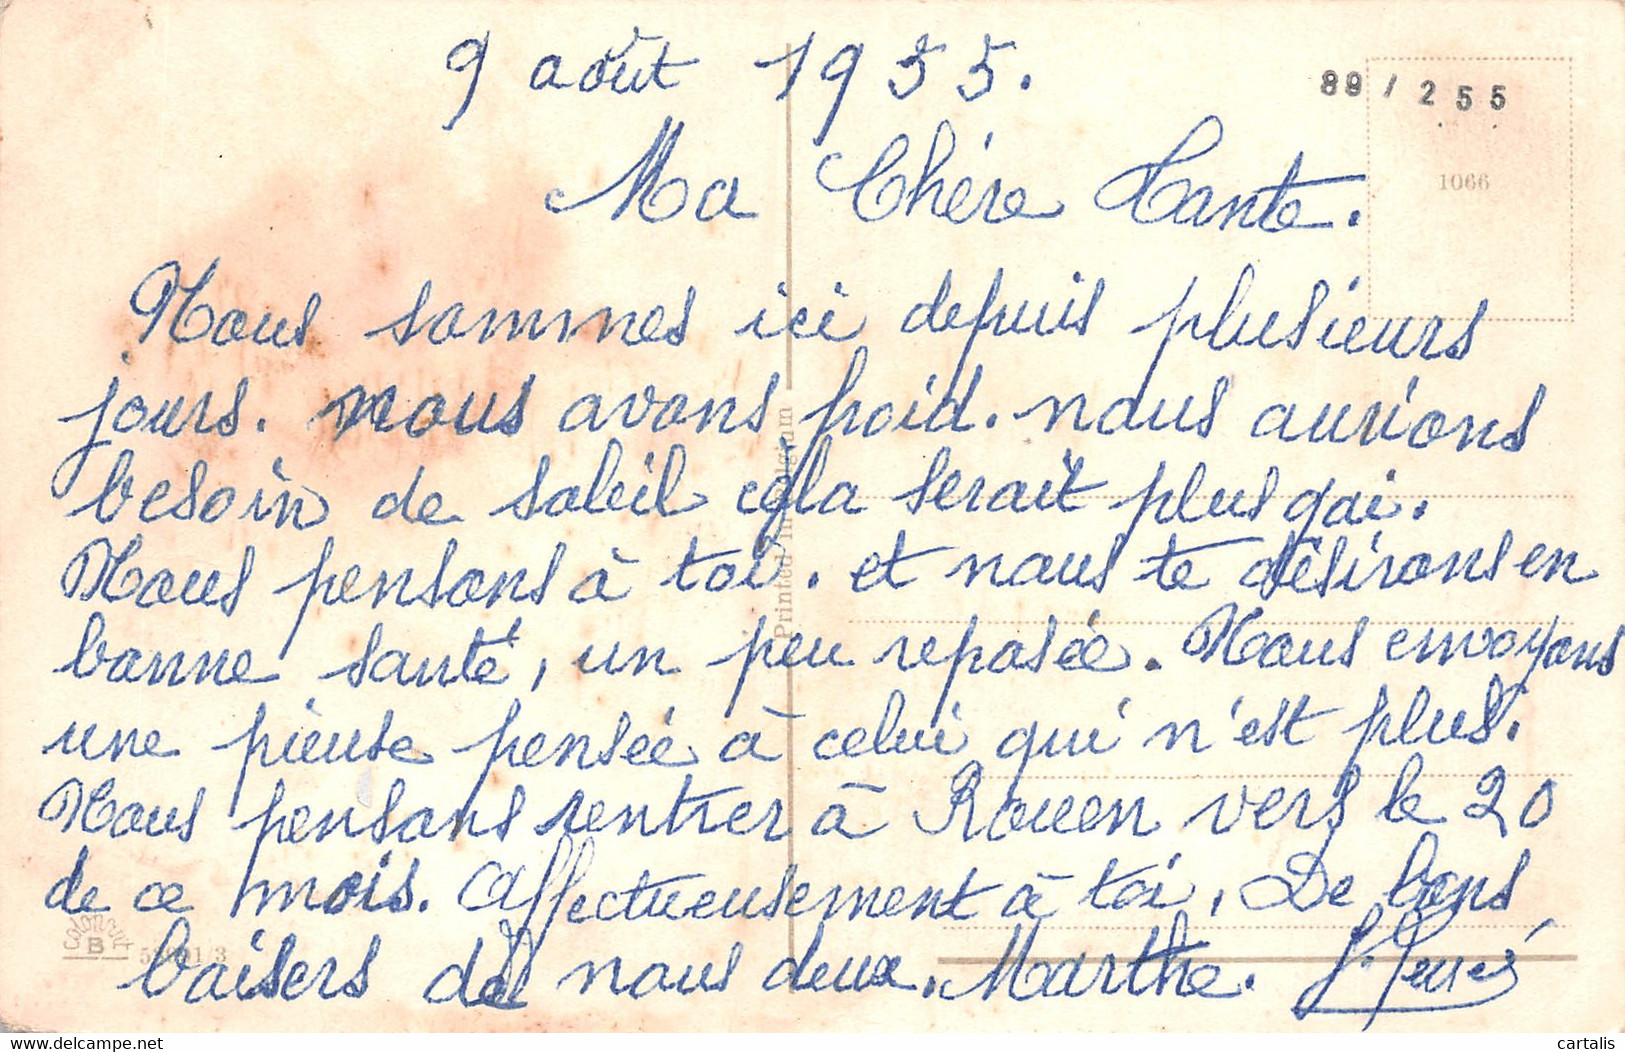 9 août 1955.
89 / 255
1066
Ma Chére Tante.
Nous sommes ici depuis plusieurs
jours. nous avons froid. nous aurions
besoin de soleil cela serait plus gai.
Nous pensons à toi. et nous te désirons en
bonne santé, un peu reposée. Nous envoyons
une pieuse pensée à celui qui n'est plus.
Nous pensons rentrer à Rouen vers le 20
de ce mois. Affectueusement à toi, De bons
baisers de nous deux. Marthe.
Printed in Belgium
Colorprint
B
/3
delcampe.net
cartalis